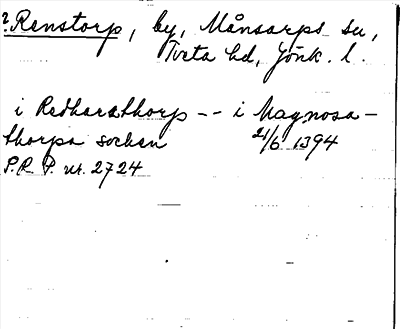 ? Renstorp, by, Månsarps sn,
Tveta hd, Jönk. l.
i Redharathorp -- i Magnosa-
thorpa sochen 21/6 1394
S.R.P. nr. 2724